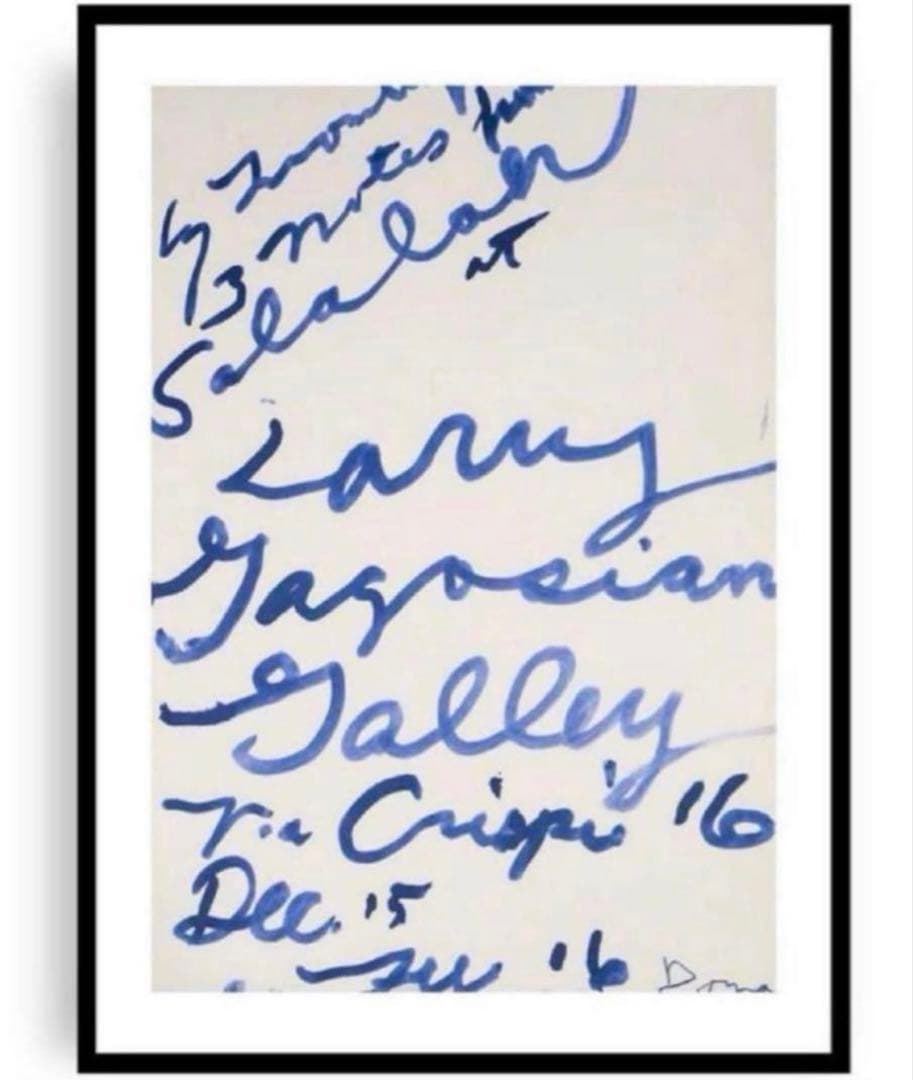 by Twombly
/3 notes from
Salalah
at
Larry
Gagosian
Galley
Via Crispi '16
Dec. '15
'16
Roma